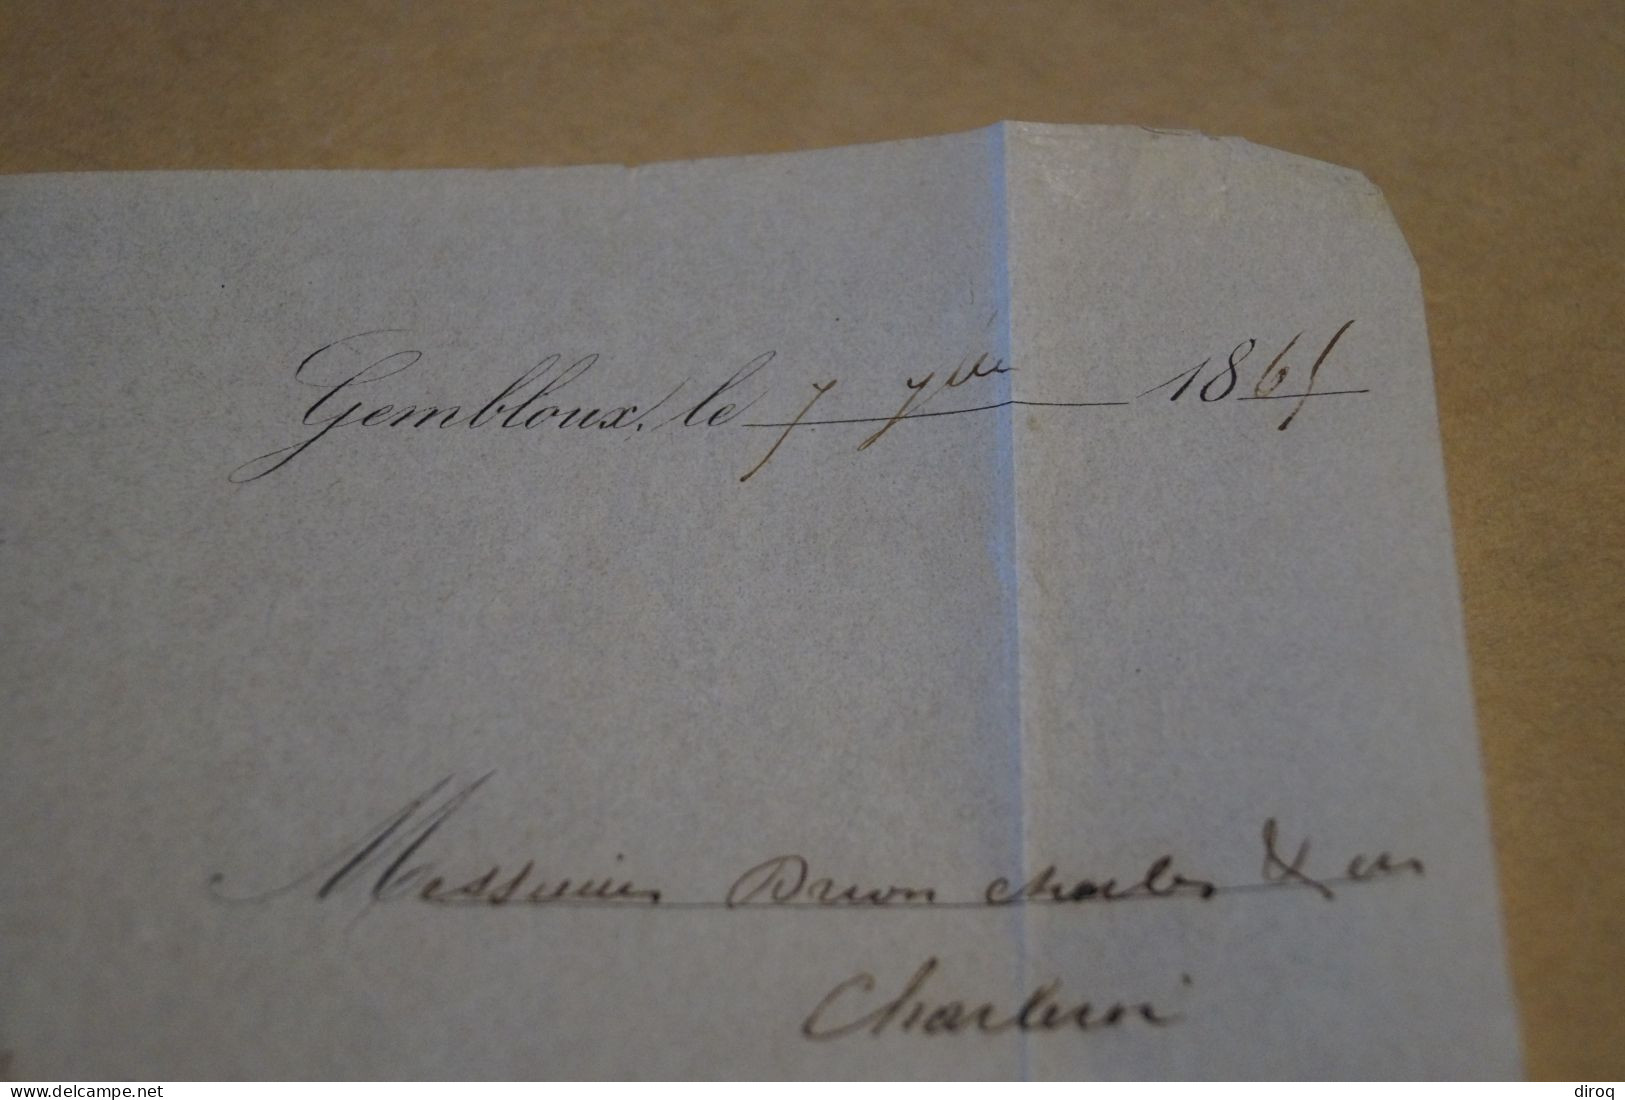 Gembloux, le 7 7bre 1865
Messieurs Drion Charles & en
Charleroi
delcampe.net
diroq